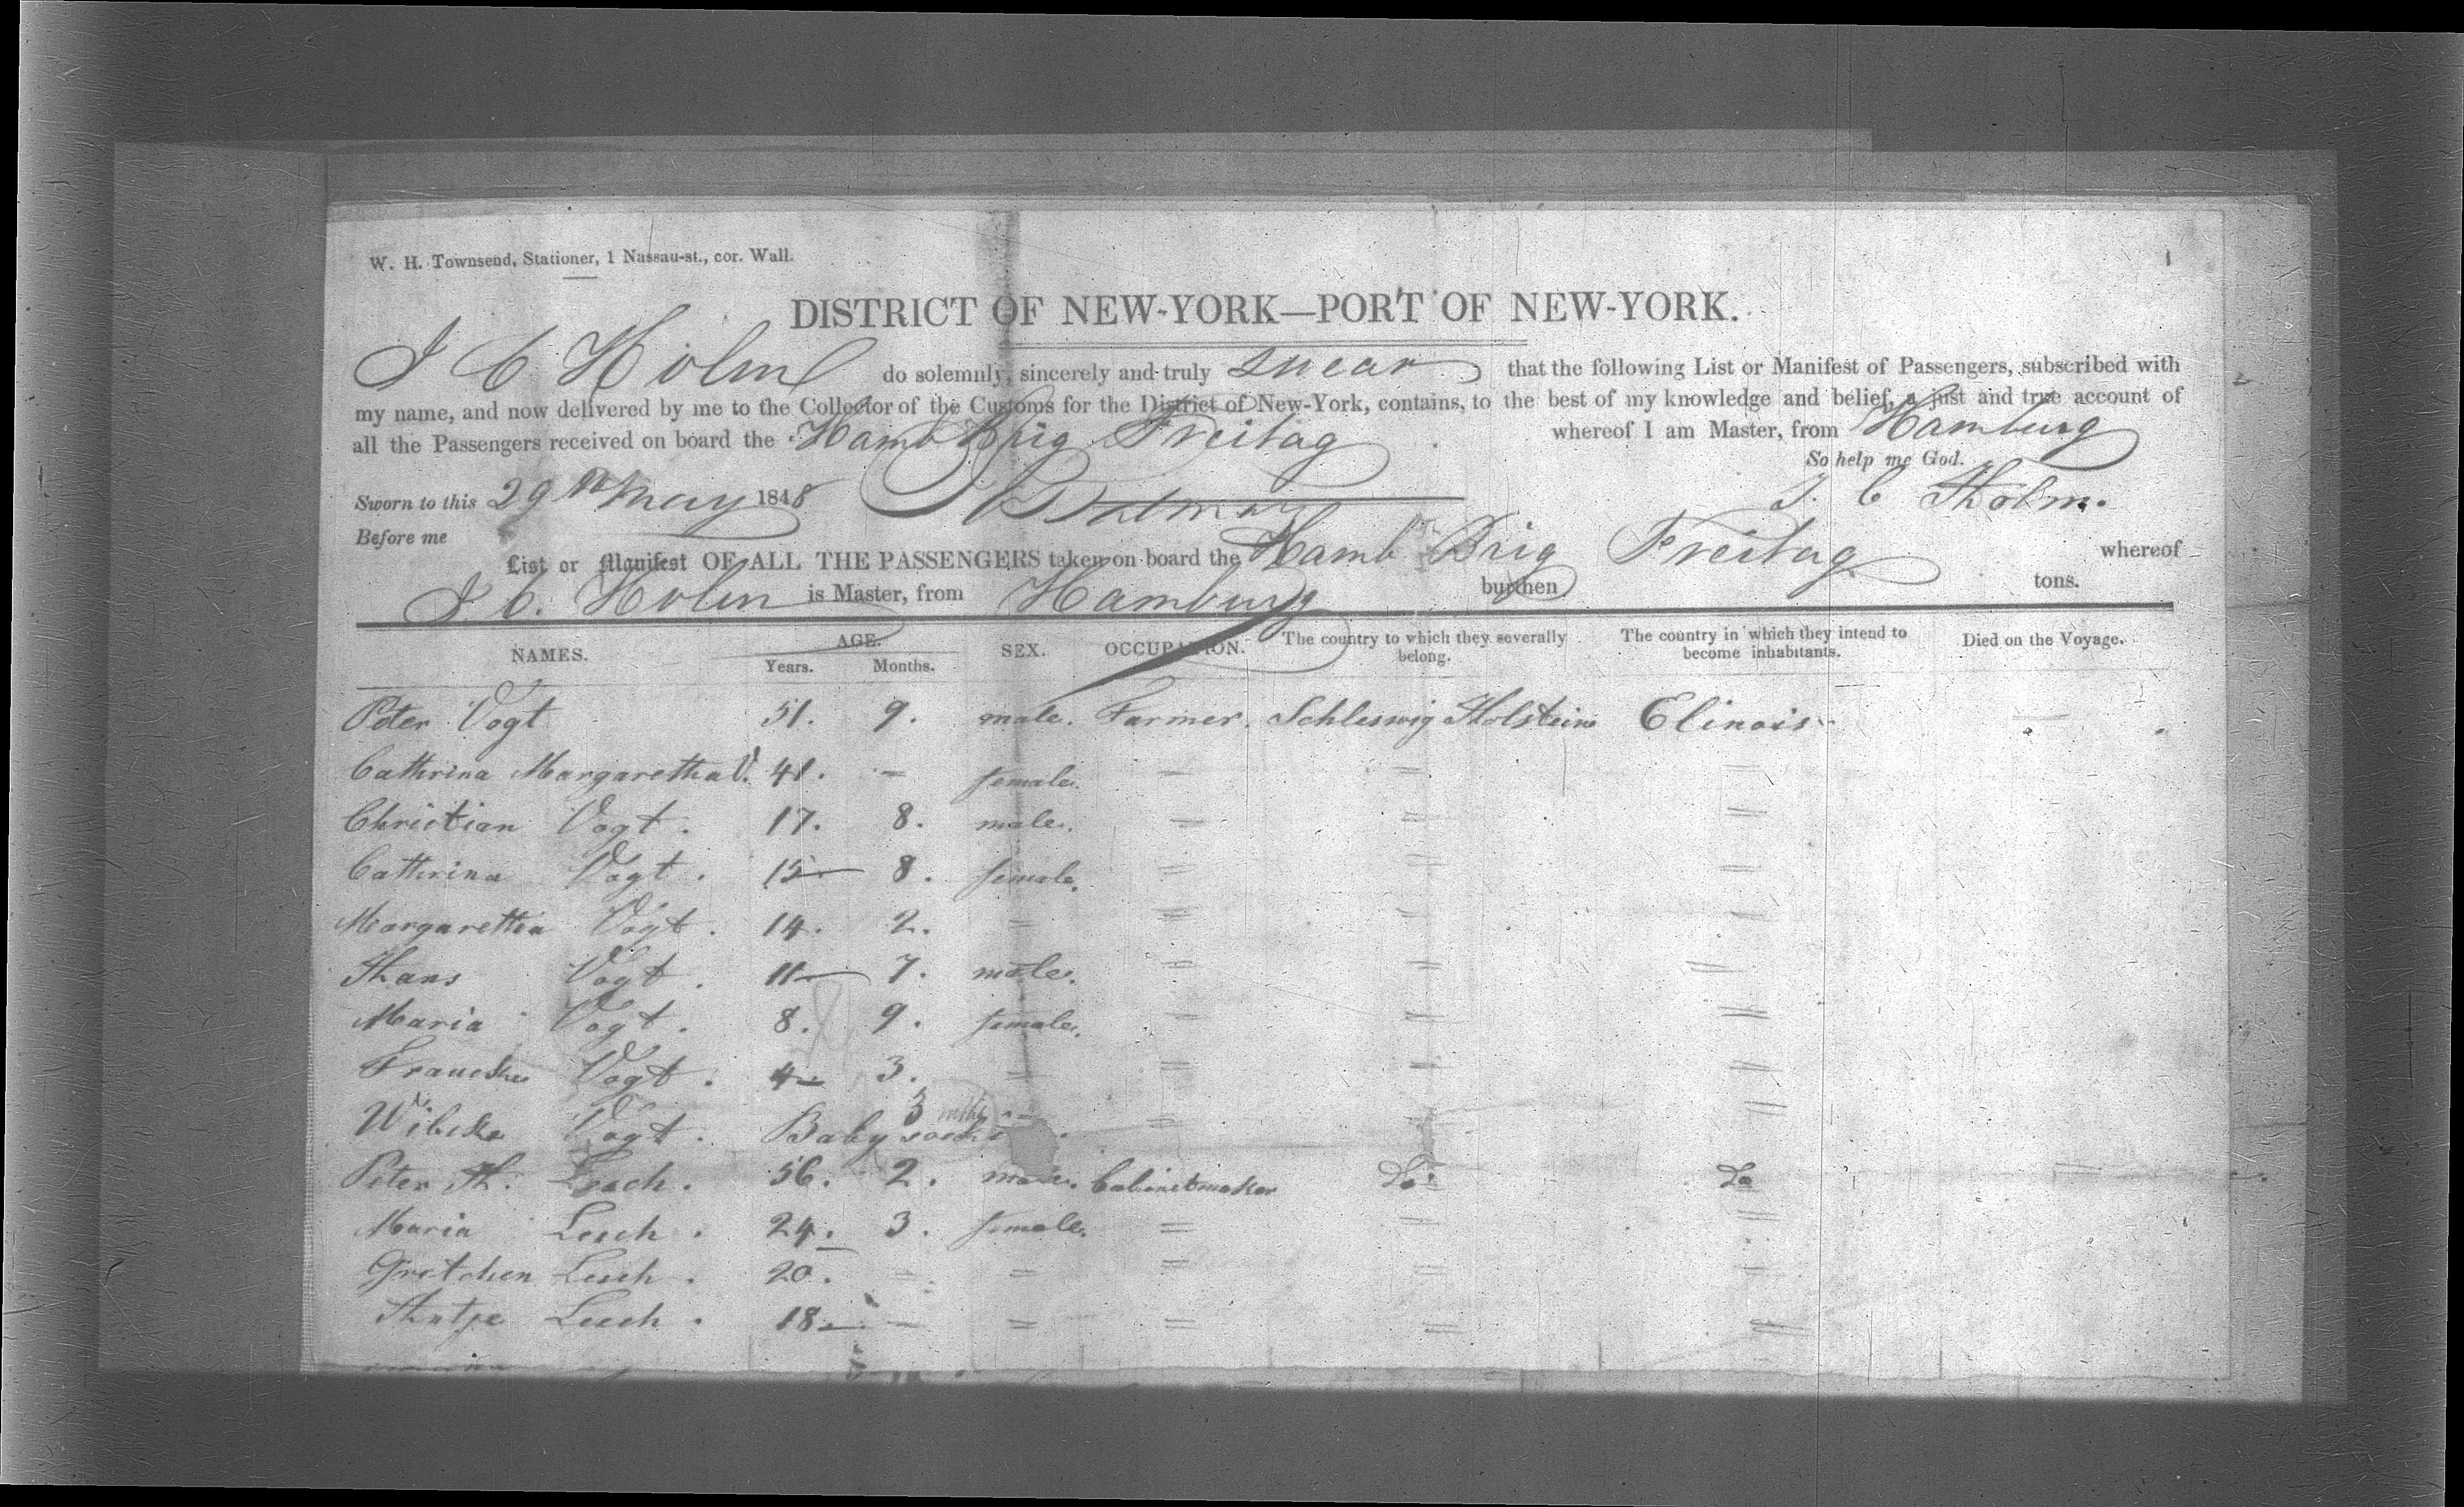 W. H. Townsend, Stationer, 1 Nassau-st., cor. Wall.
1
DISTRICT OF NEW-YORK—PORT OF NEW-YORK.
J C Holm do solemnly, sincerely and truly swear that the following List or Manifest of Passengers, subscribed with
my name, and now delivered by me to the Collector of the Customs for the District of New-York, contains, to the best of my knowledge and belief, a just and true account of
all the Passengers received on board the Hamb Brig Freitag whereof I am Master, from Hamburg
So help me God.
Sworn to this 29th May 1848 J. C Holm.
Before me
List or Manifest OF ALL THE PASSENGERS taken on board the Hamb Brig Freitag whereof
J. C. Holm is Master, from Hamburg burthen tons.
NAMES. AGE. SEX. OCCUPATION. The country to which they severally belong. The country in which they intend to become inhabitants. Died on the Voyage.
Years. Months.
Peter Vogt 51. 9. male. Farmer. Schleswig Holstein Elinois —
Cathrina Margaretha V. 41. - female. = = =
Christian Vogt. 17. 8. male. = = =
Cathrina Vogt. 15 — 8. female. = = =
Margaretha Vogt. 14. 2. = = = =
Hans Vogt. 11 — 7. male. = = =
Maria Vogt. 8. 9. female. = = =
Vogt. 4 — 3. = = = =
Wibcke Vogt. Baby 3 mths = =
Peter H. Lesch. 56. 2. male. Cabinetmaker Do Do
Maria Lesch. 24. 3. female. = = =
Gretchen Lesch. 20. = = = = =
Lesch. 18 — - = = = =